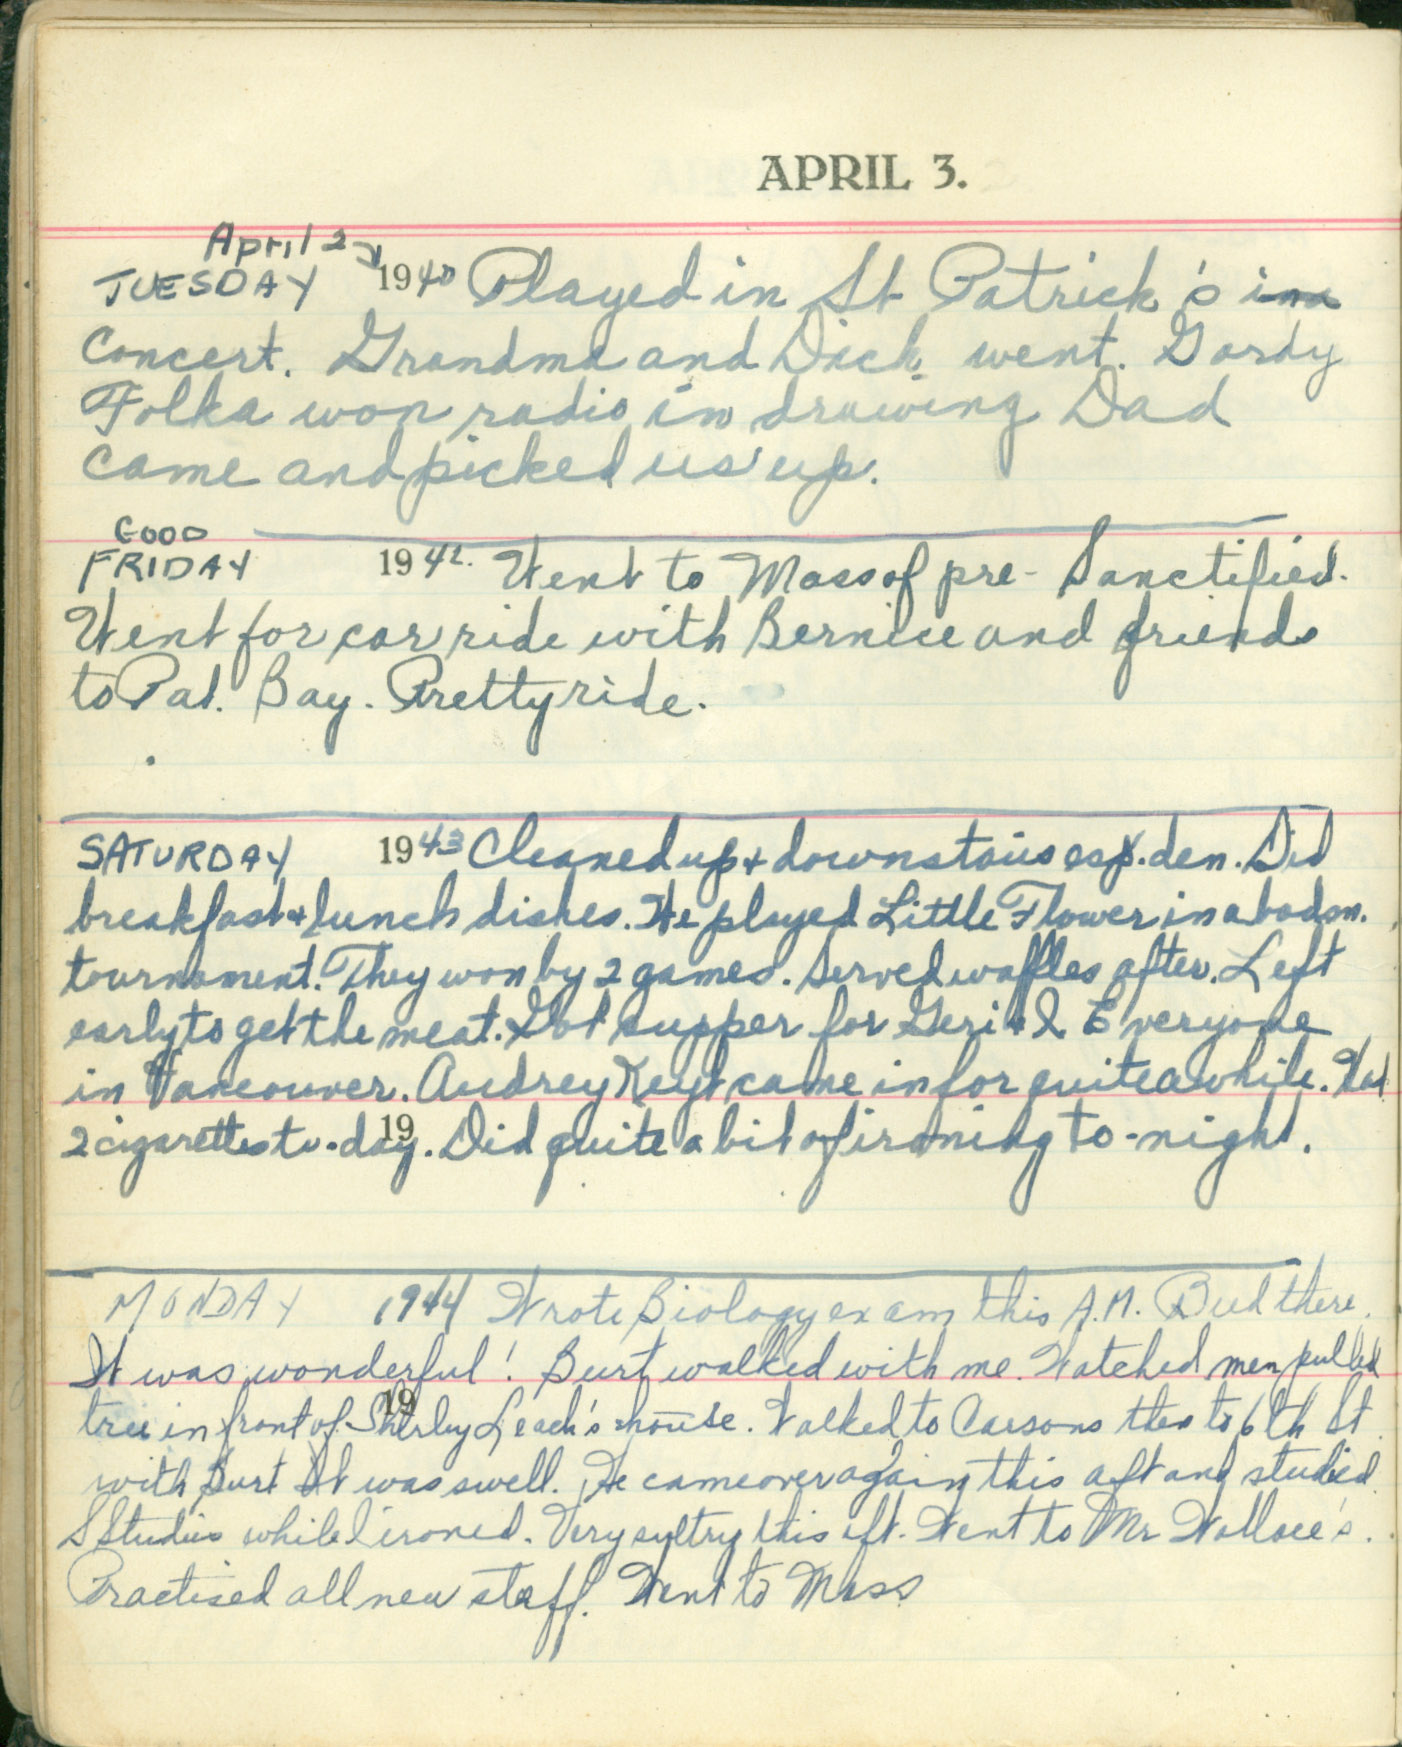 APRIL 3.
April 2
TUESDAY 1940 Played in St Patrick's in a
Concert. Grandma and Dick went. Gordy
Folka won radio in drawing Dad
came and picked us up.
GOOD
FRIDAY 1942. Went to Mass of pre-Sanctified.
Went for car ride with Bernice and friends
to Pat. Bay. Pretty ride.
SATURDAY 1943 Cleaned up + downstairs esp. den. Did
breakfast + lunch dishes. We played Little Flower in a badm.
tournament. They won by 2 games. Served waffles after. Left
early to get the meat. Got supper for Geri + I. Everyone
in Vancouver. Audrey Keyt came in for quite a while. Had
2 cigarettes to-day. Did quite a bit of ironing to-night.
19
MONDAY 1944 Wrote Biology exam this A.M. Bud there.
It was wonderful! Burt walked with me. Watched men pulled
19
tree in front of Shirley Leach's house. Walked to Carsons then to 6th St
with Burt It was swell. He came over again this aft and studied
S Studies while I ironed. Very sultry this aft. Went to Mr Wallace's.
Practised all new staff. Went to Mass